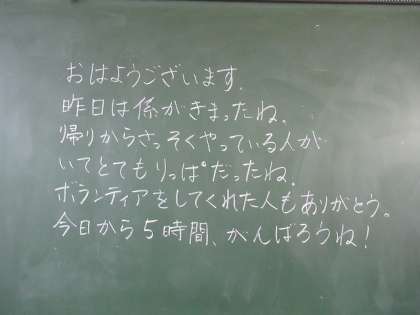 おはようございます.
昨日は係がきまったね.
帰りからさっそくやっている人が
いてとてもりっぱだったね.
ボランティアをしてくれた人もありがとう。
今日から5時間、がんばろうね!